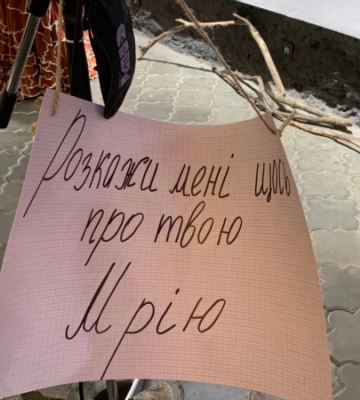 Розкажи мені щось
про твою
Мрію